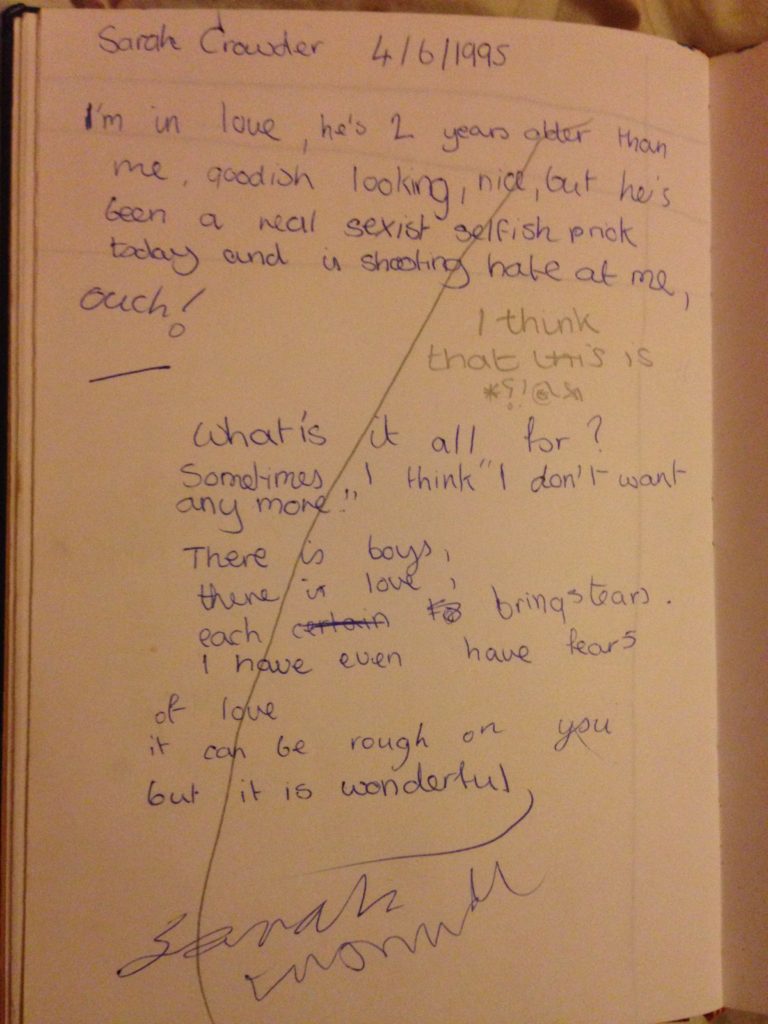 Sarah Crowder 4/6/1995
I'm in love, he's 2 years older than
me, goodish looking, nice, but he's
been a real sexist selfish prick
today and is shooting hate at me,
ouch!
I think
that this is
*?!@&
What is it all for?
Sometimes I think "I don't want
any more!"
There is boys,
there is love,
each certain to brings tears.
I have even have fears
of love
it can be rough on you
but it is wonderful
Sarah